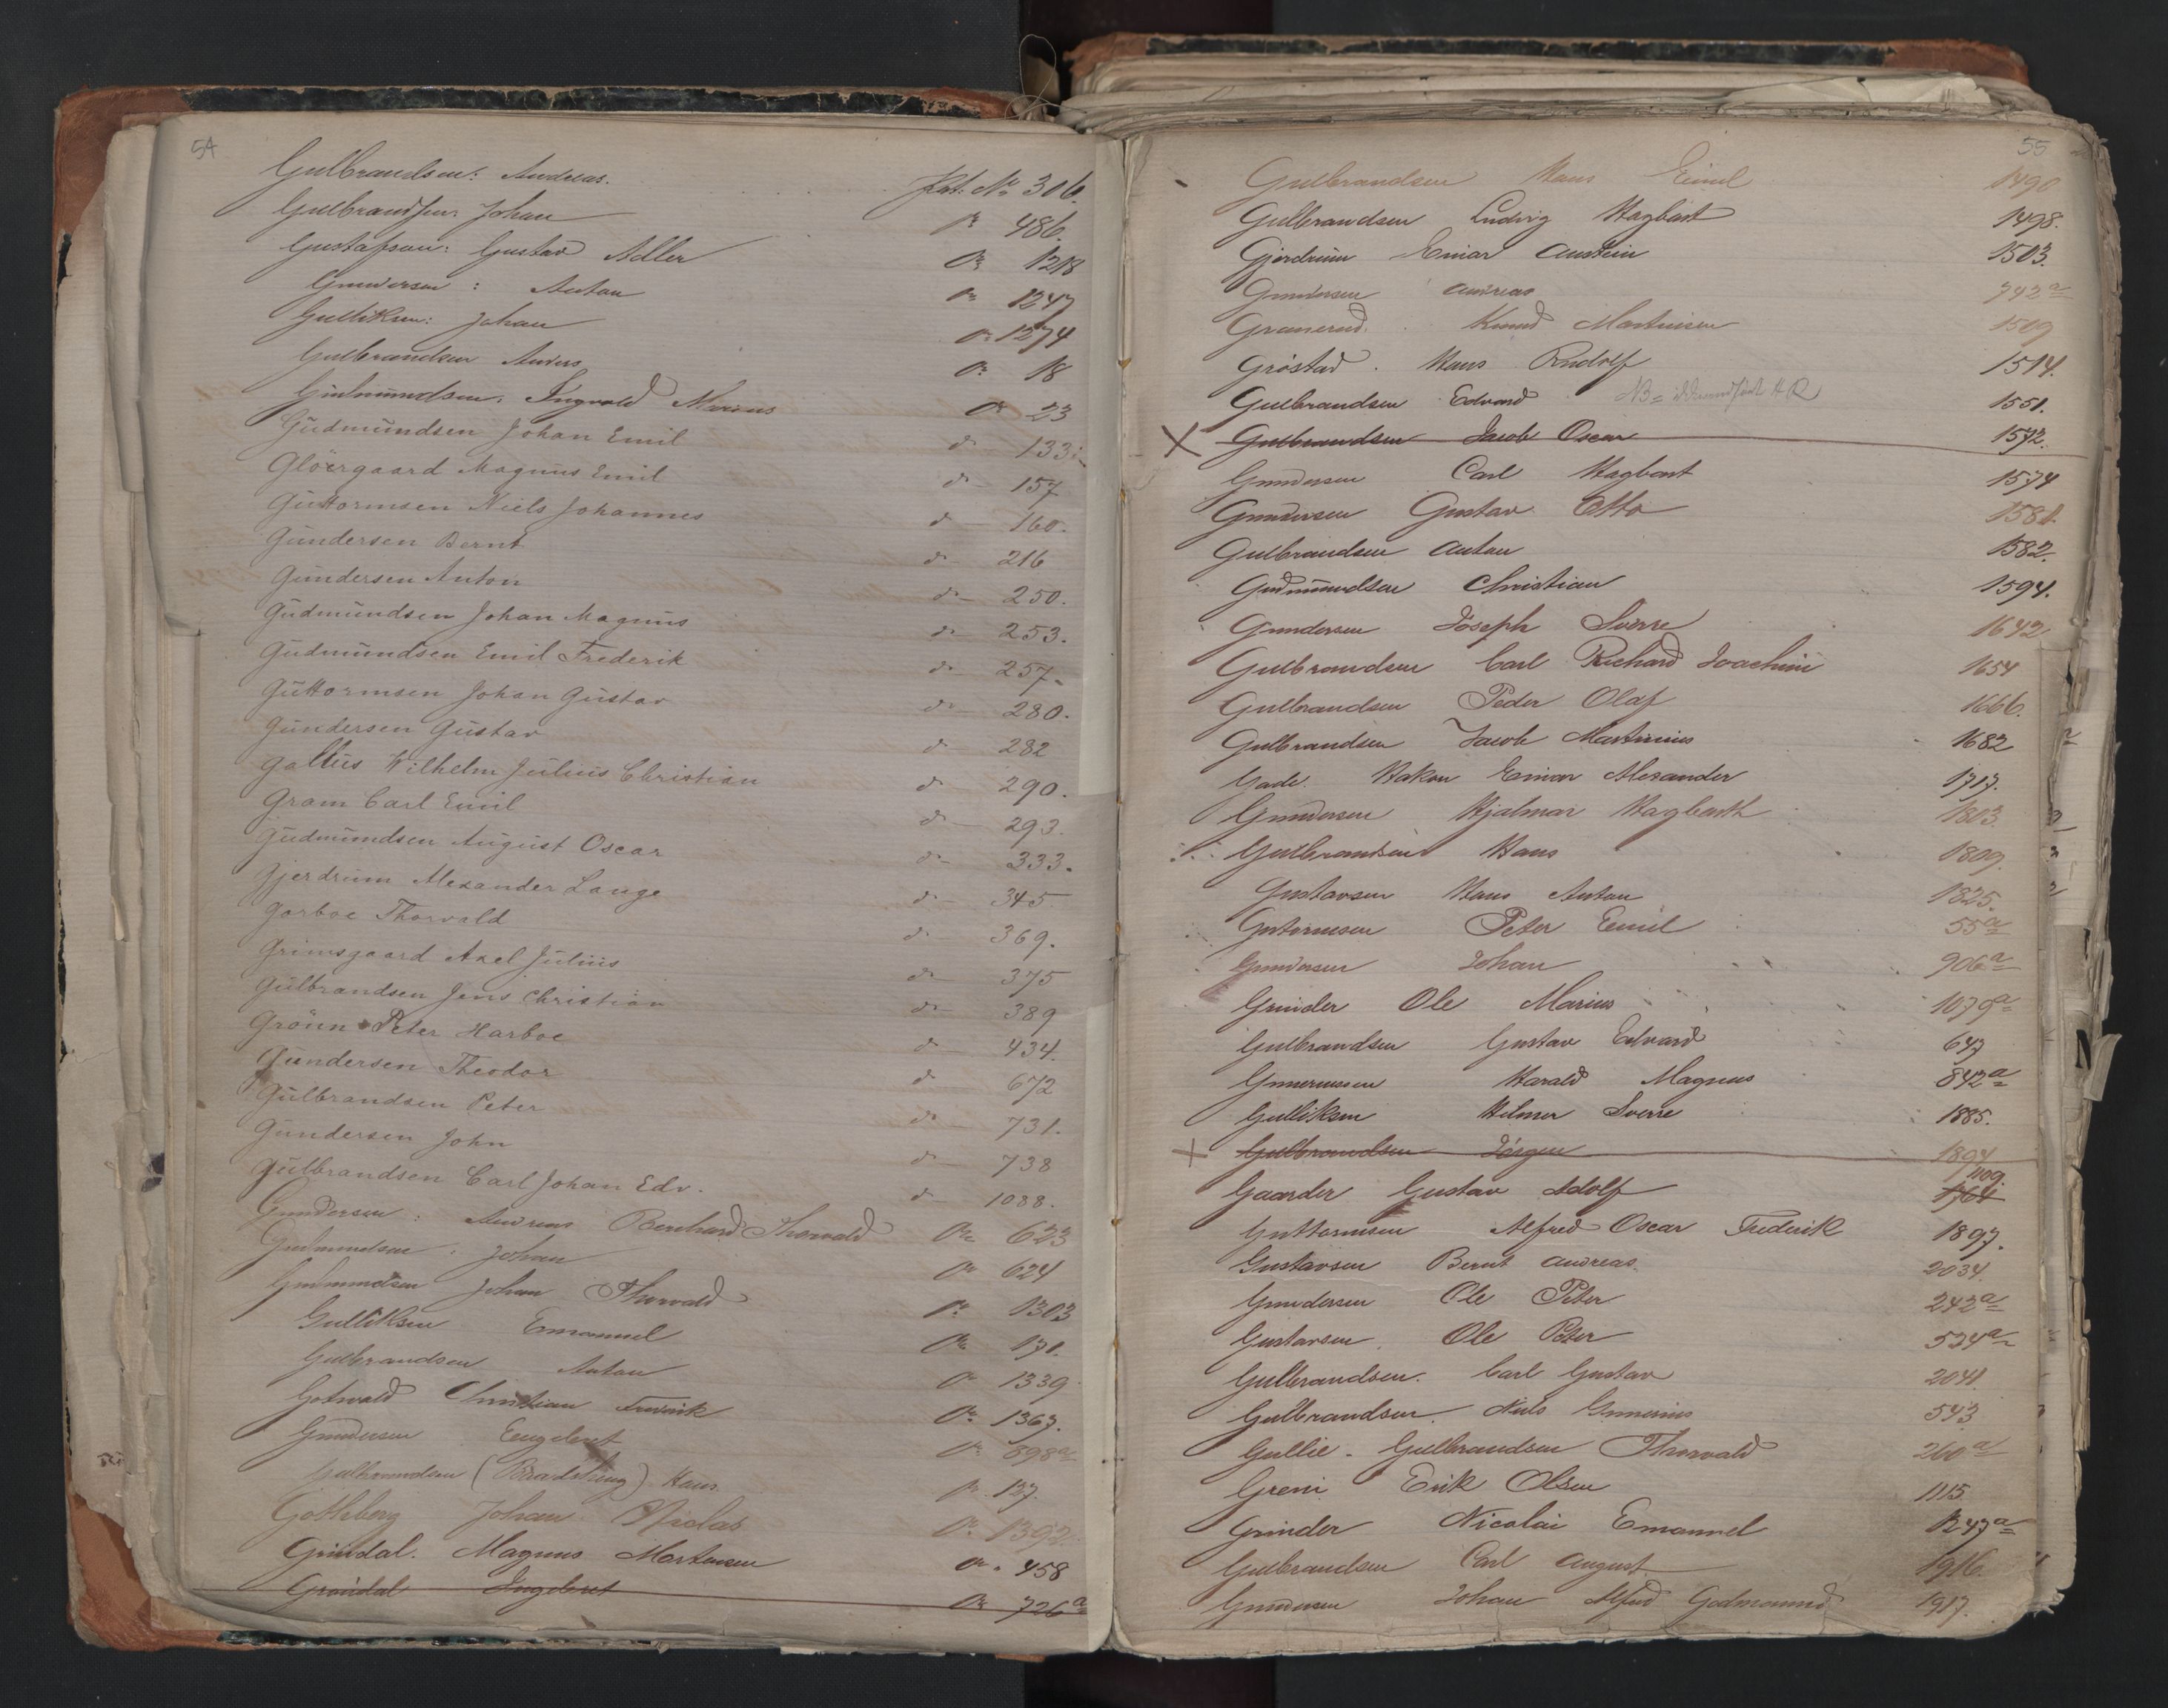 54
Gulbrandsen: Andreas. Prot. No 306.
Gulbrandsen Johan 486.
Gustafson: Gustav Adler 1218
Gundersen: Anton 1247
Gulliksen: Johan 1274
Gulbrandsen Anders 18
Gudmundsen: Ingvald Marius 23
Gudmundsen Johan Emil do 133
Glöergaard Magnus Emil do 157
Guttormsen Niels Johannes do 160.
Gundersen Bernt do 216
Gundersen Anton do 250.
Gudmundsen Johan Magnus do 253.
Gudmundsen Emil Frederik do 257.
Guttormsen Johan Gustav do 280.
Gundersen Gustav do 282
Gallus Wilhelm Julius Christian do 290.
Gram Carl Emil do 293.
Gudmundsen August Oscar do 333.
Gjerdrum Alexander Lange do 345.
Garboe Thorvald do 369.
Grimsgaard Axel Julius do 375
Gulbrandsen Jens Christian do 389
Grönn Peter Harboe do 434.
Gundersen Theodor do 672
Gulbrandsen Peter do 731.
Gundersen John do 738
Gulbrandsen Carl Johan Edv. do 1088.
Gundersen: Andreas Bernhard Thorvald 623
Gudmundsen: Johan 624
Gudmundsen Johan Thorvald 1303
Gulliksen Emanuel 171.
Gulbrandsen Anton 1339
Gotwald Christian Fredrik 1367.
Gundersen Engebret 898a
Gulbrandsen Hans 137.
Gothberg Johan Niclas 1392.
Grindal. Magnus Mortensen 458
Gröndal Ingebret 726a
55
Gulbrandsen Hans Emil 1490
Gulbrandsen Ludvig Hagbart 1498.
Gjerdrum Einar Austein 1503.
Gundersen Andreas 742a
Granerud. Knud Martinsen 1509
Gröstad. Hans Rudolf 1514.
Gulbrandsen Edvard NB 1551.
X Gulbrandsen Jacob Oscar 1572.
Gundersen Carl Hagbart 1574
Gundersen Gustav Otto 1581.
Gulbrandsen Anton 1582.
Gudmundsen Christian 1594.
Gundersen Joseph Sverre 1642
Gulbrandsen Carl Richard Joachim 1654
Gulbrandsen Peder Olaf 1666.
Gulbrandsen Jacob Martinius 1682
Gade. Hakon Einar Alexander 1717.
Gundersen Hjalmar Hagbarth 1803.
Gulbrandsen Hans 1809.
Gustavsen Hans Anton 1825.
Gutormsen Peter Emil 55a
Gundersen Johan 906a
Grinder Ole Marius 1079a
Gulbrandsen Gustav Edvard 647
Gunerussen Harald Magnus 842a
Gulliksen Hilmer Sverre 1885.
X Gulbrandsen Jörgen 1894
Gaarder Gustav Adolf 1764 1109.
Guttormsen Alfred Oscar Frederik 1897.
Gustavsen Bernt Andreas. 2034.
Gundersen Ole Peter 242a
Gustavsen. Ole Peter 534a
Gulbrandsen. Carl Gustav 2041.
Gulbrandsen. Niels Gunerius 543
Gullie - Gulbrandsen Thorvald 260a
Greni Erik Olsen 1115.
Grinder Nicolai Emanuel 1247a
Gulbrandsen Carl August 1916.
Gundersen Johan Alfred Godmound 1917.
N